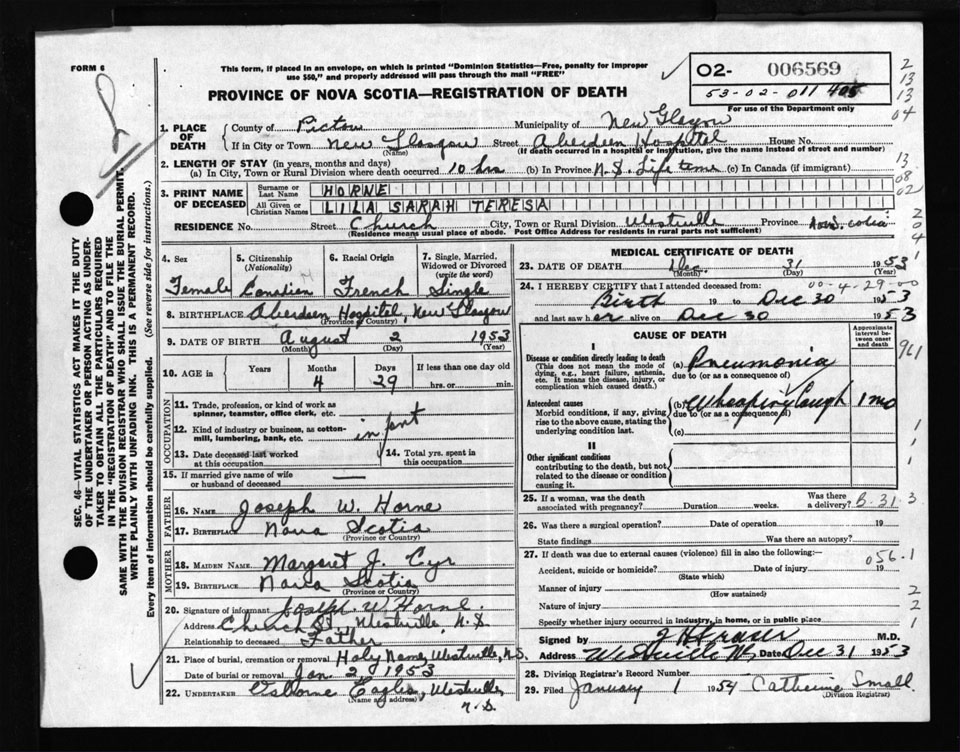 FORM 6
This form, if placed in an envelope, on which is printed "Dominion Statistics—Free, penalty for improper
use $50," and properly addressed will pass through the mail "FREE"
PROVINCE OF NOVA SCOTIA—REGISTRATION OF DEATH
02- 006569
53-02-011 405
For use of the Department only
2
13
13
04
13
08
02
2
0
4
SEC. 46—VITAL STATISTICS ACT MAKES IT THE DUTY
OF THE UNDERTAKER OR PERSON ACTING AS UNDER-
TAKER TO OBTAIN ALL THE PARTICULARS REQUIRED
IN THE "REGISTRATION OF DEATH" AND TO FILE THE
SAME WITH THE DIVISION REGISTRAR WHO SHALL ISSUE THE BURIAL PERMIT.
WRITE PLAINLY WITH UNFADING INK. THIS IS A PERMANENT RECORD.
Every item of information should be carefully supplied. (See reverse side for instructions.)
1. PLACE OF DEATH County of Pictou Municipality of New Glasgow
If in City or Town New Glasgow Street Aberdeen Hospital House No.
(Name) (If death occurred in a hospital or institution, give the name instead of street and number)
2. LENGTH OF STAY (in years, months and days)
(a) In City, Town or Rural Division where death occurred 10 hrs (b) In Province N.S. Life time (c) In Canada (if immigrant)
3. PRINT NAME OF DECEASED Surname or Last Name HORNE
All Given or Christian Names LILA SARAH TERESA
RESIDENCE No. Street Church City, Town or Rural Division Westville Province Nova Scotia
(Residence means usual place of abode. Post Office Address for residents in rural parts not sufficient)
4. Sex 5. Citizenship (Nationality) 6. Racial Origin 7. Single, Married, Widowed or Divorced (write the word)
Female Canadian French Single
8. BIRTHPLACE Aberdeen Hospital, New Glasgow
(Province or Country)
9. DATE OF BIRTH August 2 1953
(Month) (Day) (Year)
10. AGE in Years Months Days If less than one day old
4 29 hrs. or min.
OCCUPATION
11. Trade, profession, or kind of work as
spinner, teamster, office clerk, etc.
12. Kind of industry or business, as cotton-
mill, lumbering, bank, etc. infant
13. Date deceased last worked
at this occupation
14. Total yrs. spent in
this occupation
15. If married give name of wife
or husband of deceased
FATHER
16. Name Joseph W. Horne
17. Birthplace Nova Scotia
(Province or Country)
MOTHER
18. MAIDEN NAME Margaret J. Cyr
19. BIRTHPLACE Nova Scotia
(Province or Country)
20. Signature of informant Joseph W Horne.
Address Church St, Westville, N.S
Relationship to deceased Father
21. Place of burial, cremation or removal Holy Name, Westville, N.S.
Date of burial or removal Jan 2, 1953
22. UNDERTAKER Osborne Eagles, Westville
(Name and address) N.S.
MEDICAL CERTIFICATE OF DEATH
23. DATE OF DEATH Dec. 31 1953
(Month) (Day) (Year)
24. I HEREBY CERTIFY that I attended deceased from: 00-4-29-00
Birth 19 to Dec 30 1953
and last saw her alive on Dec 30 1953
CAUSE OF DEATH
Approximate interval between onset and death
I
Disease or condition directly leading to death
(This does not mean the mode of
dying, e.g., heart failure, asthenia,
etc. It means the disease, injury, or
complication which caused death.)
(a) Pneumonia
due to (or as a consequence of)
Antecedent causes
Morbid conditions, if any, giving
rise to the above cause, stating the
underlying condition last.
(b) Whooping Cough 1 mo
due to (or as a consequence of)
(c)
II
Other significant conditions
contributing to the death, but not
related to the disease or condition
causing it.
25. If a woman, was the death
associated with pregnancy? Duration weeks. Was there a delivery? B-31-3
26. Was there a surgical operation? Date of operation 19
State findings Was there an autopsy?
27. If death was due to external causes (violence) fill in also the following:—
056-1
Accident, suicide or homicide? Date of injury 19
(State which)
Manner of injury
(How sustained)
Nature of injury
Specify whether injury occurred in industry, in home, or in public place
Signed by J H Fraser M.D.
Address Westville NS Date Dec 31 1953
28. Division Registrar's Record Number
29. Filed January 1 1954 Catherine Small.
(Division Registrar)